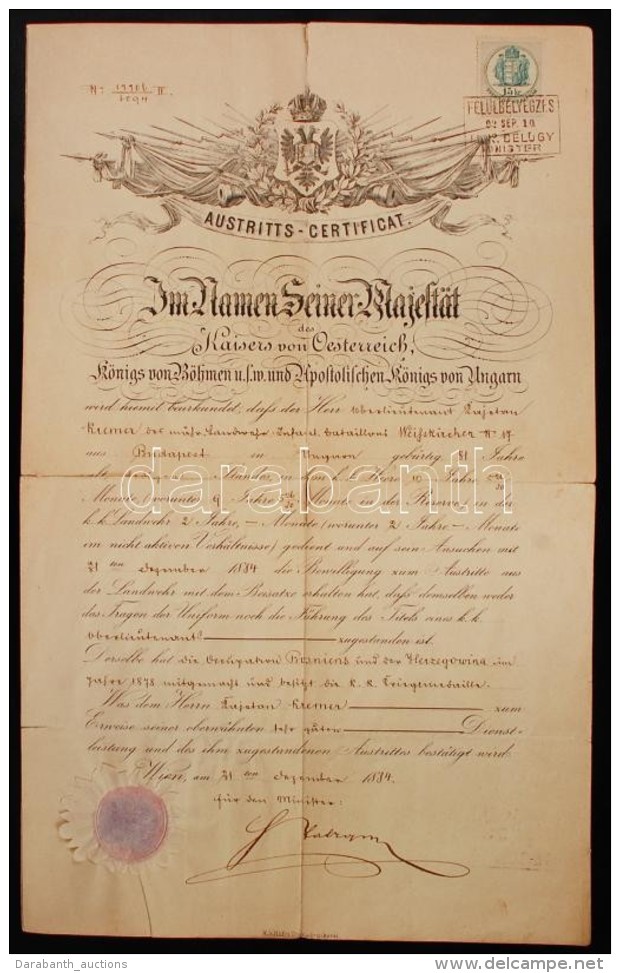 15 kr
FELÜLBÉLYEGZÉS
MINISTER
AUSTRITTS-CERTIFICAT.
Im Namen Seiner Majestät
des
Kaisers von Oesterreich,
Königs von Böhmen u.s.w. und Apostolischen Königs von Ungarn
wird hiemit beurkundet, daß der Herr Oberlieutenant Kajetan
Kremer des mähr. Landwehr Infant. Bataillons Weißkirchen Nr 17
aus Budapest in Ungarn gebürtig 31 Jahre
alt, Standes, in dem k. k. Heere 10 Jahre
Monate (worunter 9 Jahre Monate in der Reserve) in der
k.k. Landwehr 2 Jahre, – Monate (worunter 2 Jahre – Monate
im nicht aktiven Verhältnisse) gedient und auf sein Ansuchen mit
21 ten Dezember 1884 die Bewilligung zum Austritte aus
der Landwehr mit dem Beisatze erhalten hat, daß demselben weder
das Tragen der Uniform noch die Führung des Titels eines k.k.
Oberlieutenants zugestanden ist.
Derselbe hat die Occupation Bosniens und der Herzegowina im
Jahre 1878 mitgemacht und besitzt die k. k. Kriegsmedaille.
Was dem Herrn Kajetan Kremer zum
Erweise seiner oberwähnten sehr guten Dienst-
leistung und des ihm zugestandenen Austrittes bestätigt wird.
Wien, am 21 ten Dezember 1884.
Für den Minister:
darabanth
Darabanth_auctions
www.delcampe.net